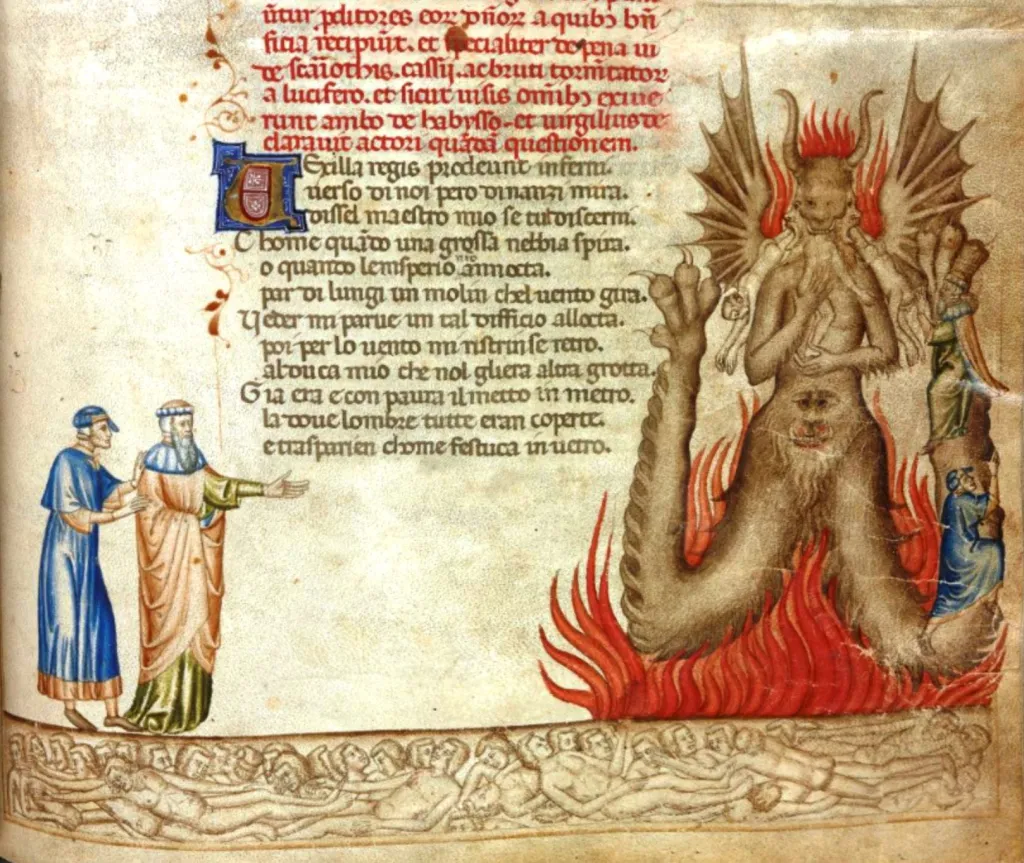 ūtur pditores eor dn̄or a quibꝫ bn̄
ficia recipiūt. et specialiter de pena iu
de scāiothis. cassii. ac bruti tormētator
a lucifero. et sicut uisis omībꝫ exiue
runt ambo de habysso. et uirgilius de
clarauit actori quādā questionem.
Uexilla regis prodeunt inferni.
uerso di noi pero dinanzi mira.
dissel maestro mio se tu discerni.
Chome quādo una grossa nebbia spira.
o quanto lemisperio nio annocta.
par di lungi un molin chel uento gira.
Ueder mi parue un tal difficio allocta.
poi per lo uento mi ristrinse retro.
al duca mio che nol gliera altra grotta.
Gia era e con paura il metto in metro.
la doue lombre tutte eran coperte.
e trasparien chome festuca in uetro.